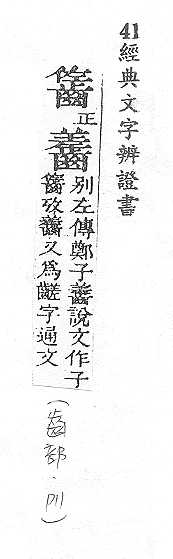 41經典文字辨證書
正齹別左傳鄭子齹說文作子
攷齹又為字通文
(齒部.p11)